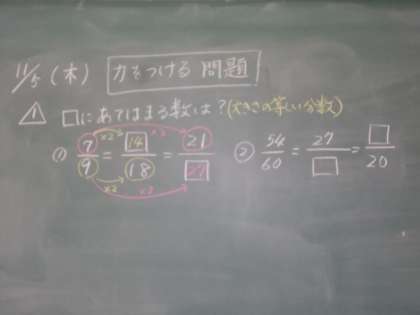 11/5 (木) 力をつける問題
1 □にあてはまる数は?(大きさの等しい分数)
① 7/9 = 14/18 = 21/27 ×2 ×3 ×2 ×3
② 54/60 = 27/□ = □/20